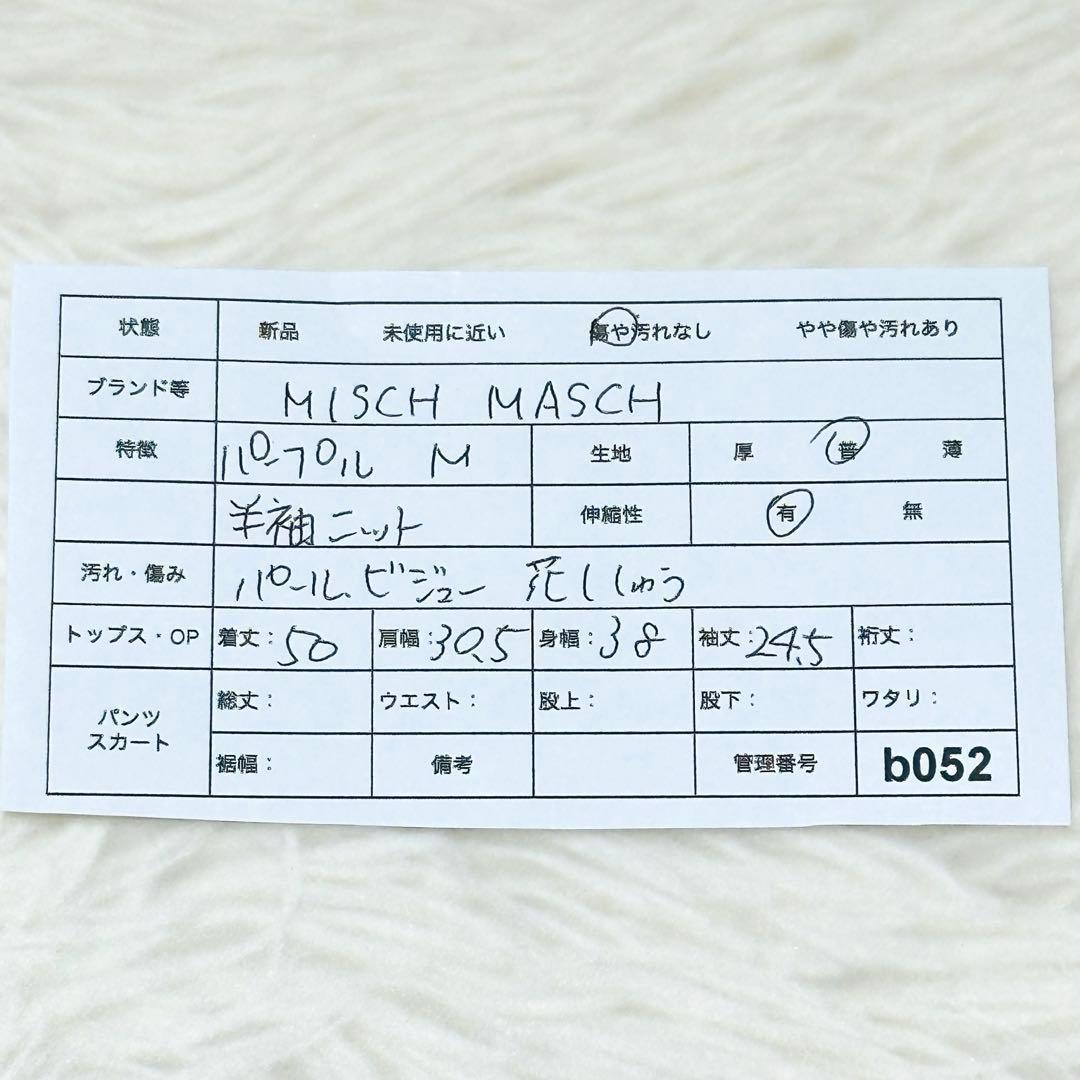 状態 新品 未使用に近い 傷や汚れなし やや傷や汚れあり
ブランド等 MISCH MASCH
特徴 パープル M 生地 厚 普 薄
半袖ニット 伸縮性 有 無
汚れ・傷み パール、ビジュー 花ししゅう
トップス・OP 着丈:50 肩幅:30.5 身幅:38 袖丈:24.5 裄丈:
パンツ
スカート
総丈: ウエスト: 股上: 股下: ワタリ:
裾幅: 備考 管理番号 b052